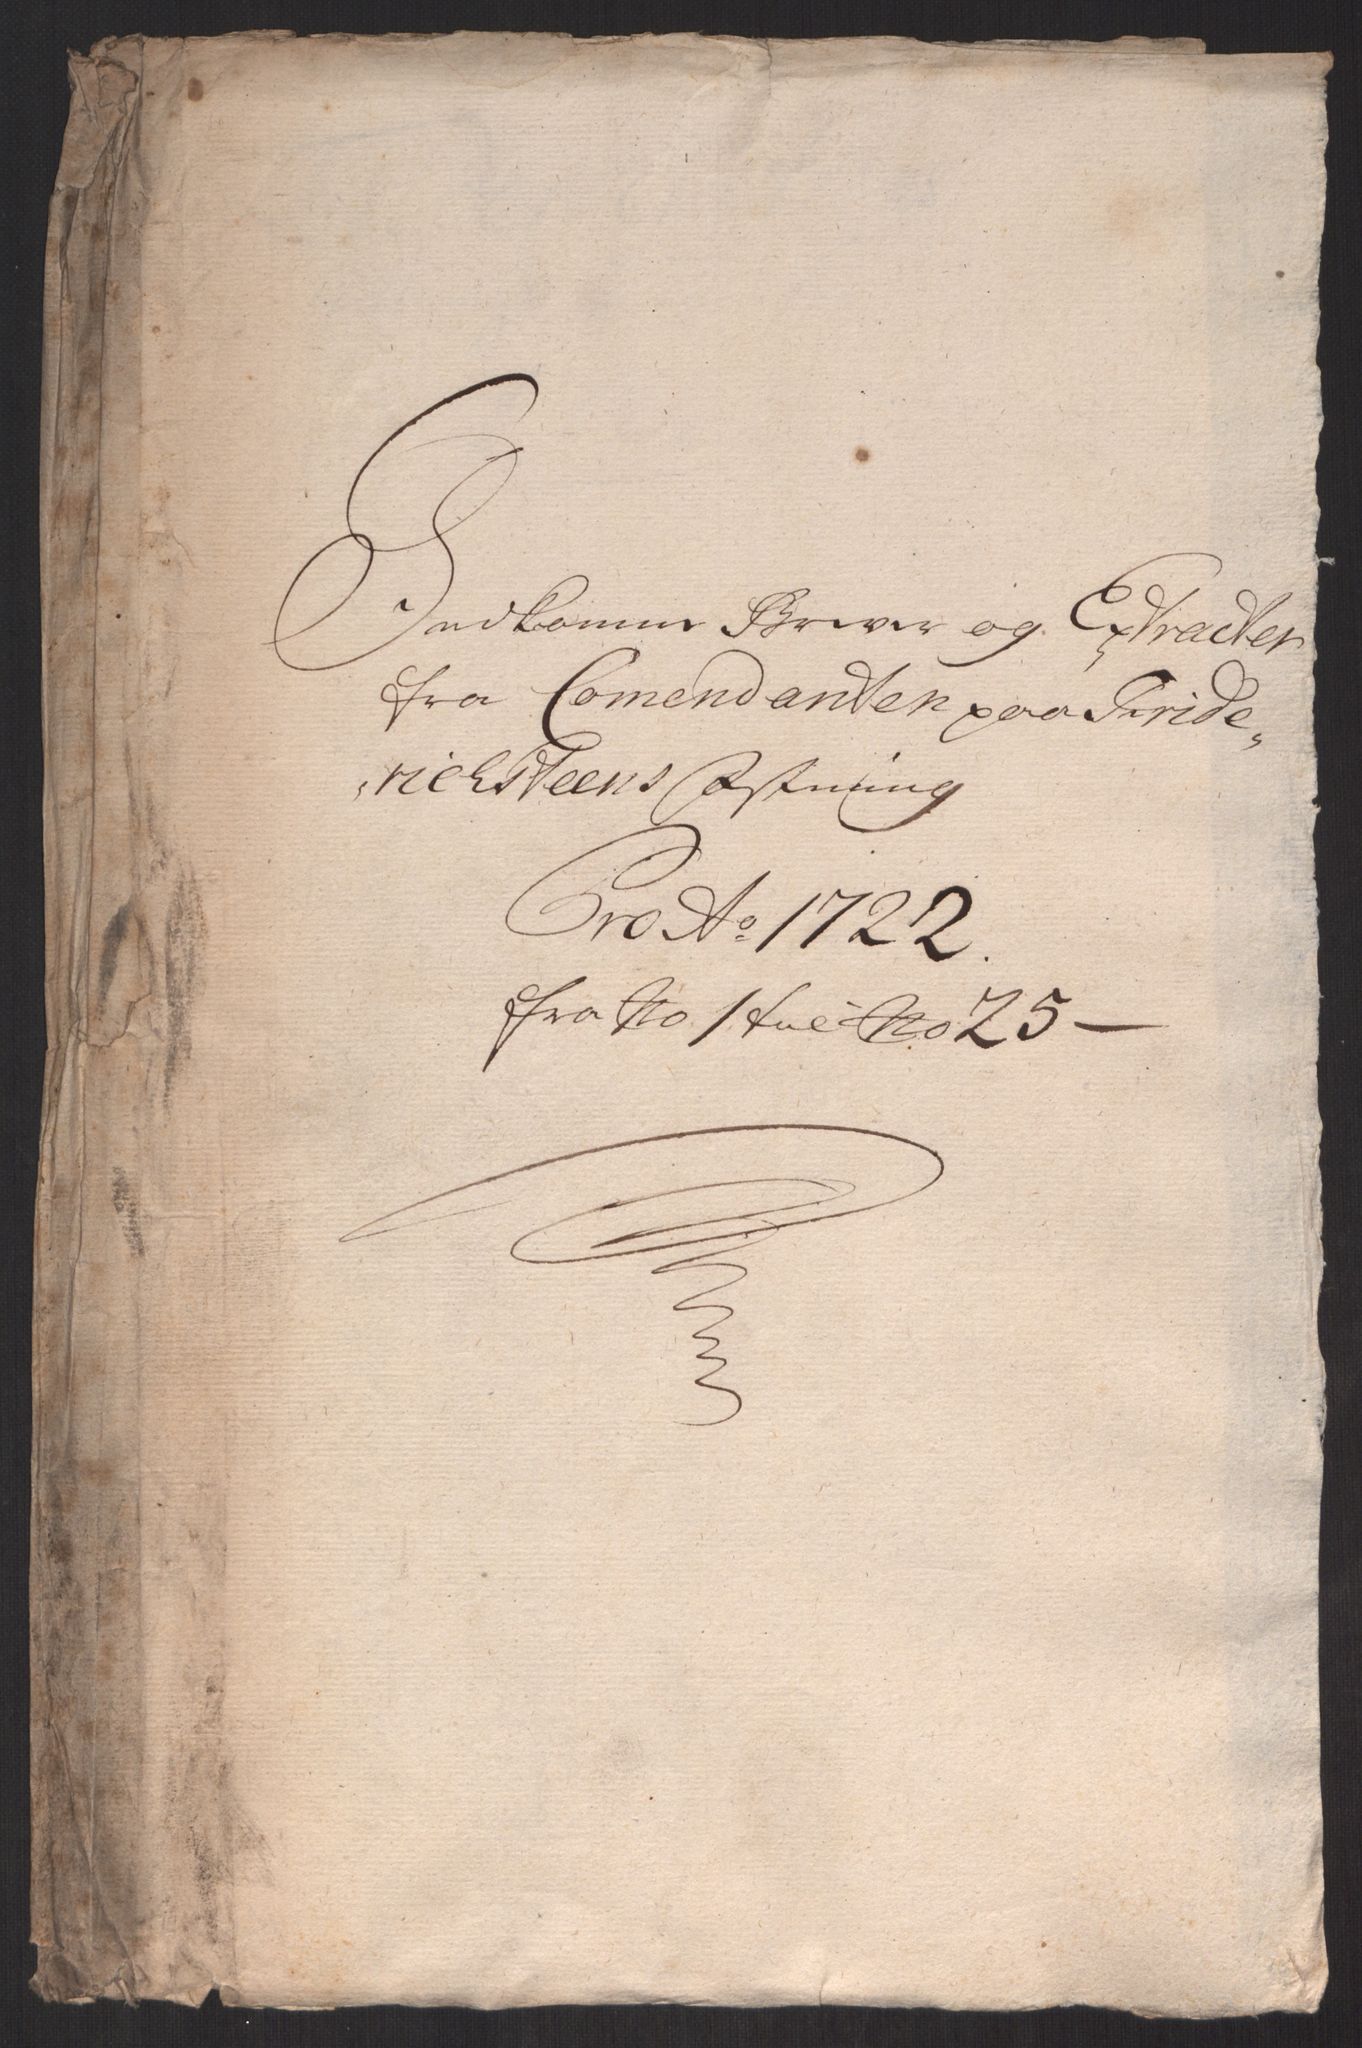 Indkomne Brever og Extracter
fra Comendanten paa Fride„
„richsteens Festning
Pro Ao 1722.
fra No 1 til No 25 —